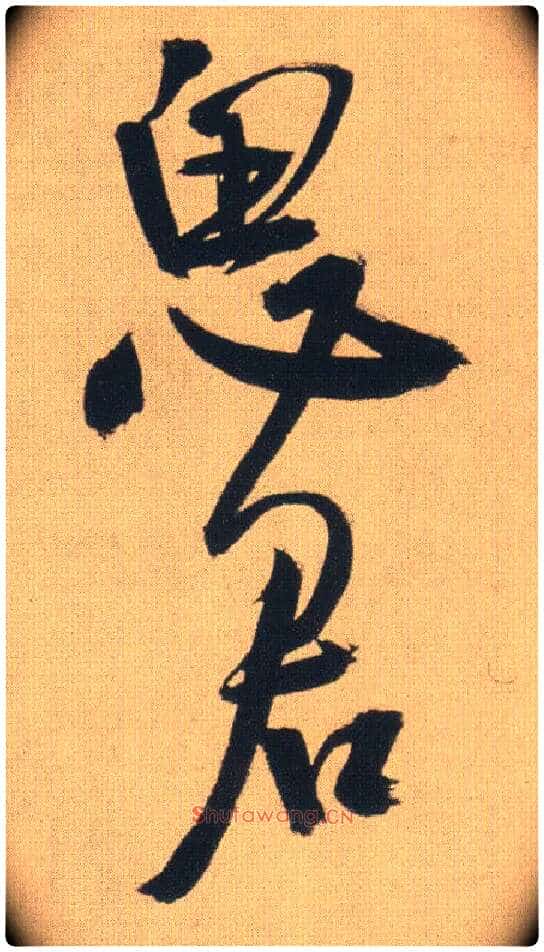 思君
Shufawang.CN